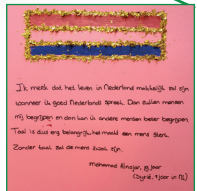 Ik merk dat het leven in Nederland makkelijk zal zijn
wanneer ik goed Nederlands spreek. Dan zullen mensen
mij begrijpen en dan kan ik andere mensen beter begrijpen.
Taal is dus erg belangrijk, het maakt een mens sterk.
Zonder taal zal de mens zwak zijn.
Mohamed Alnajar, 19 jaar
(Syrië, 1 jaar in NL)